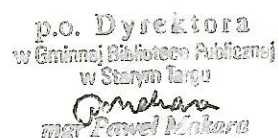 p.o. Dyrektora
w Gminnej Bibliotece Publicznej
w Starym Targu
mgr Paweł Makara